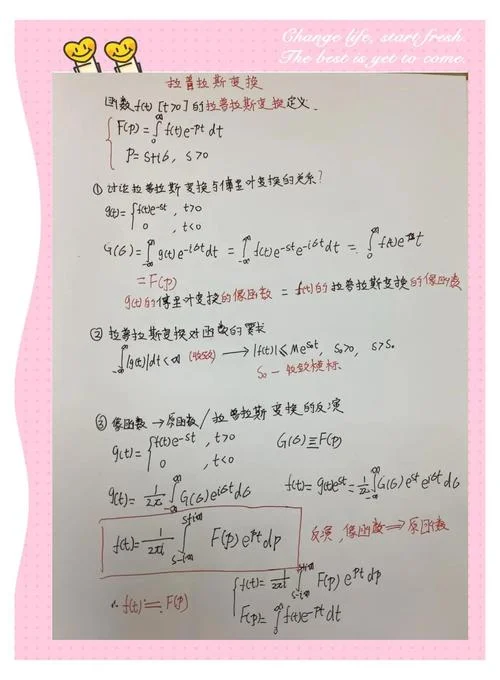 Change life, start fresh
The best is yet to come.
拉普拉斯变换
函数 f(t) [t>0] 的拉普拉斯变换定义.
F(p) = ∫₀^∞ f(t)e^{-pt}dt
p = s+iб, s>0
① 讨论拉普拉斯变换与傅里叶变换的关系?
g(t) = { f(t)e^{-st}, t>0
0, t<0
G(б) = ∫_{-∞}^{∞} g(t)e^{-iбt}dt = ∫_{-∞}^{∞} f(t)e^{-st}e^{-iбt}dt = ∫₀^∞ f(t)e^{-pt}t
= F(p)
g(t)的傅里叶变换的像函数 = f(t)的拉普拉斯变换的像函数
② 拉普拉斯变换对函数的要求
∫_{-∞}^{∞} |g(t)|dt<∞ (收敛) → |f(t)| ≤ Me^{s₀t}, s₀>0, s>s₀
S₀ — 收敛横标
③ 像函数 → 原函数 / 拉普拉斯变换的反演
g(t) = { f(t)e^{-st}, t>0
0, t<0 G(б) ≡ F(p)
g(t) = 1/2π ∫_{-∞}^{∞} G(б)e^{iбt}dб f(t) = g(t)e^{st} = 1/2π ∫_{-∞}^{∞} G(б)e^{st}e^{iбt}dб
f(t) = 1/2πi ∫_{s-i∞}^{s+i∞} F(p)e^{pt}dp 反演, 像函数 ⟹ 原函数
{ f(t) = 1/2πi ∫_{s-i∞}^{s+i∞} F(p)e^{pt}dp
∴ f(t) ≓ F(p) F(p) = ∫₀^∞ f(t)e^{-pt}dt